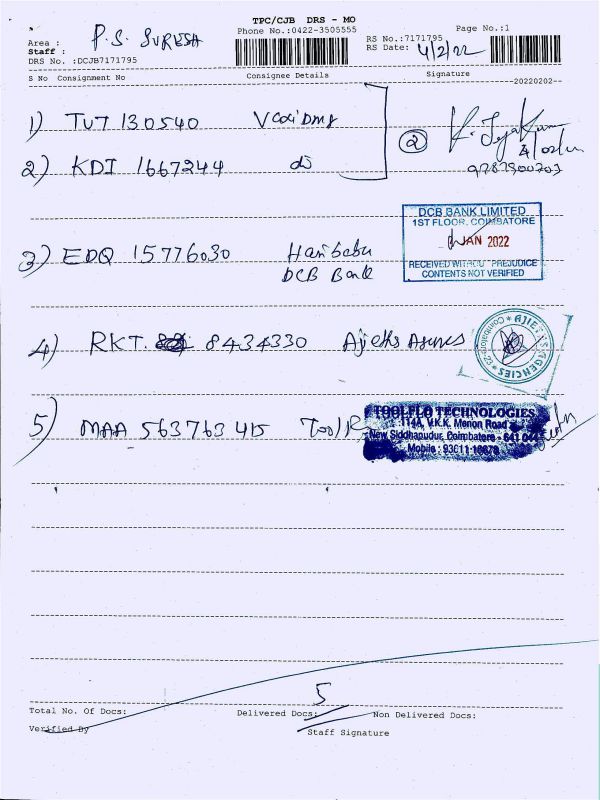 TPC/CJB DRS - MO
Phone No.:0422-3505555
Page No.:1
RS No.:7171795
RS Date: 4/2/22
Area : P.S. SURESH
Staff :
DRS No. :DCJB7171795
S No Consignment No Consignee Details Signature
20220202
1) TUT 130540
2) KDI 1667244 do
②
9787900703
DCB BANK LIMITED
1ST FLOOR, COIMBATORE
JAN 2022
RECEIVED WITHOUT PREJUDICE
CONTENTS NOT VERIFIED
3) EDQ 15776030 Haribabu
DCB Bank
4) RKT. 8434330
AGENCIES
5) MAA 563763415
TOOLFLO TECHNOLOGIES
114A, V.K.K. Menon Road
New Siddhapudur, Coimbatore - 641 044
5
Total No. Of Docs: Delivered Docs: Non Delivered Docs:
Verified By
Staff Signature